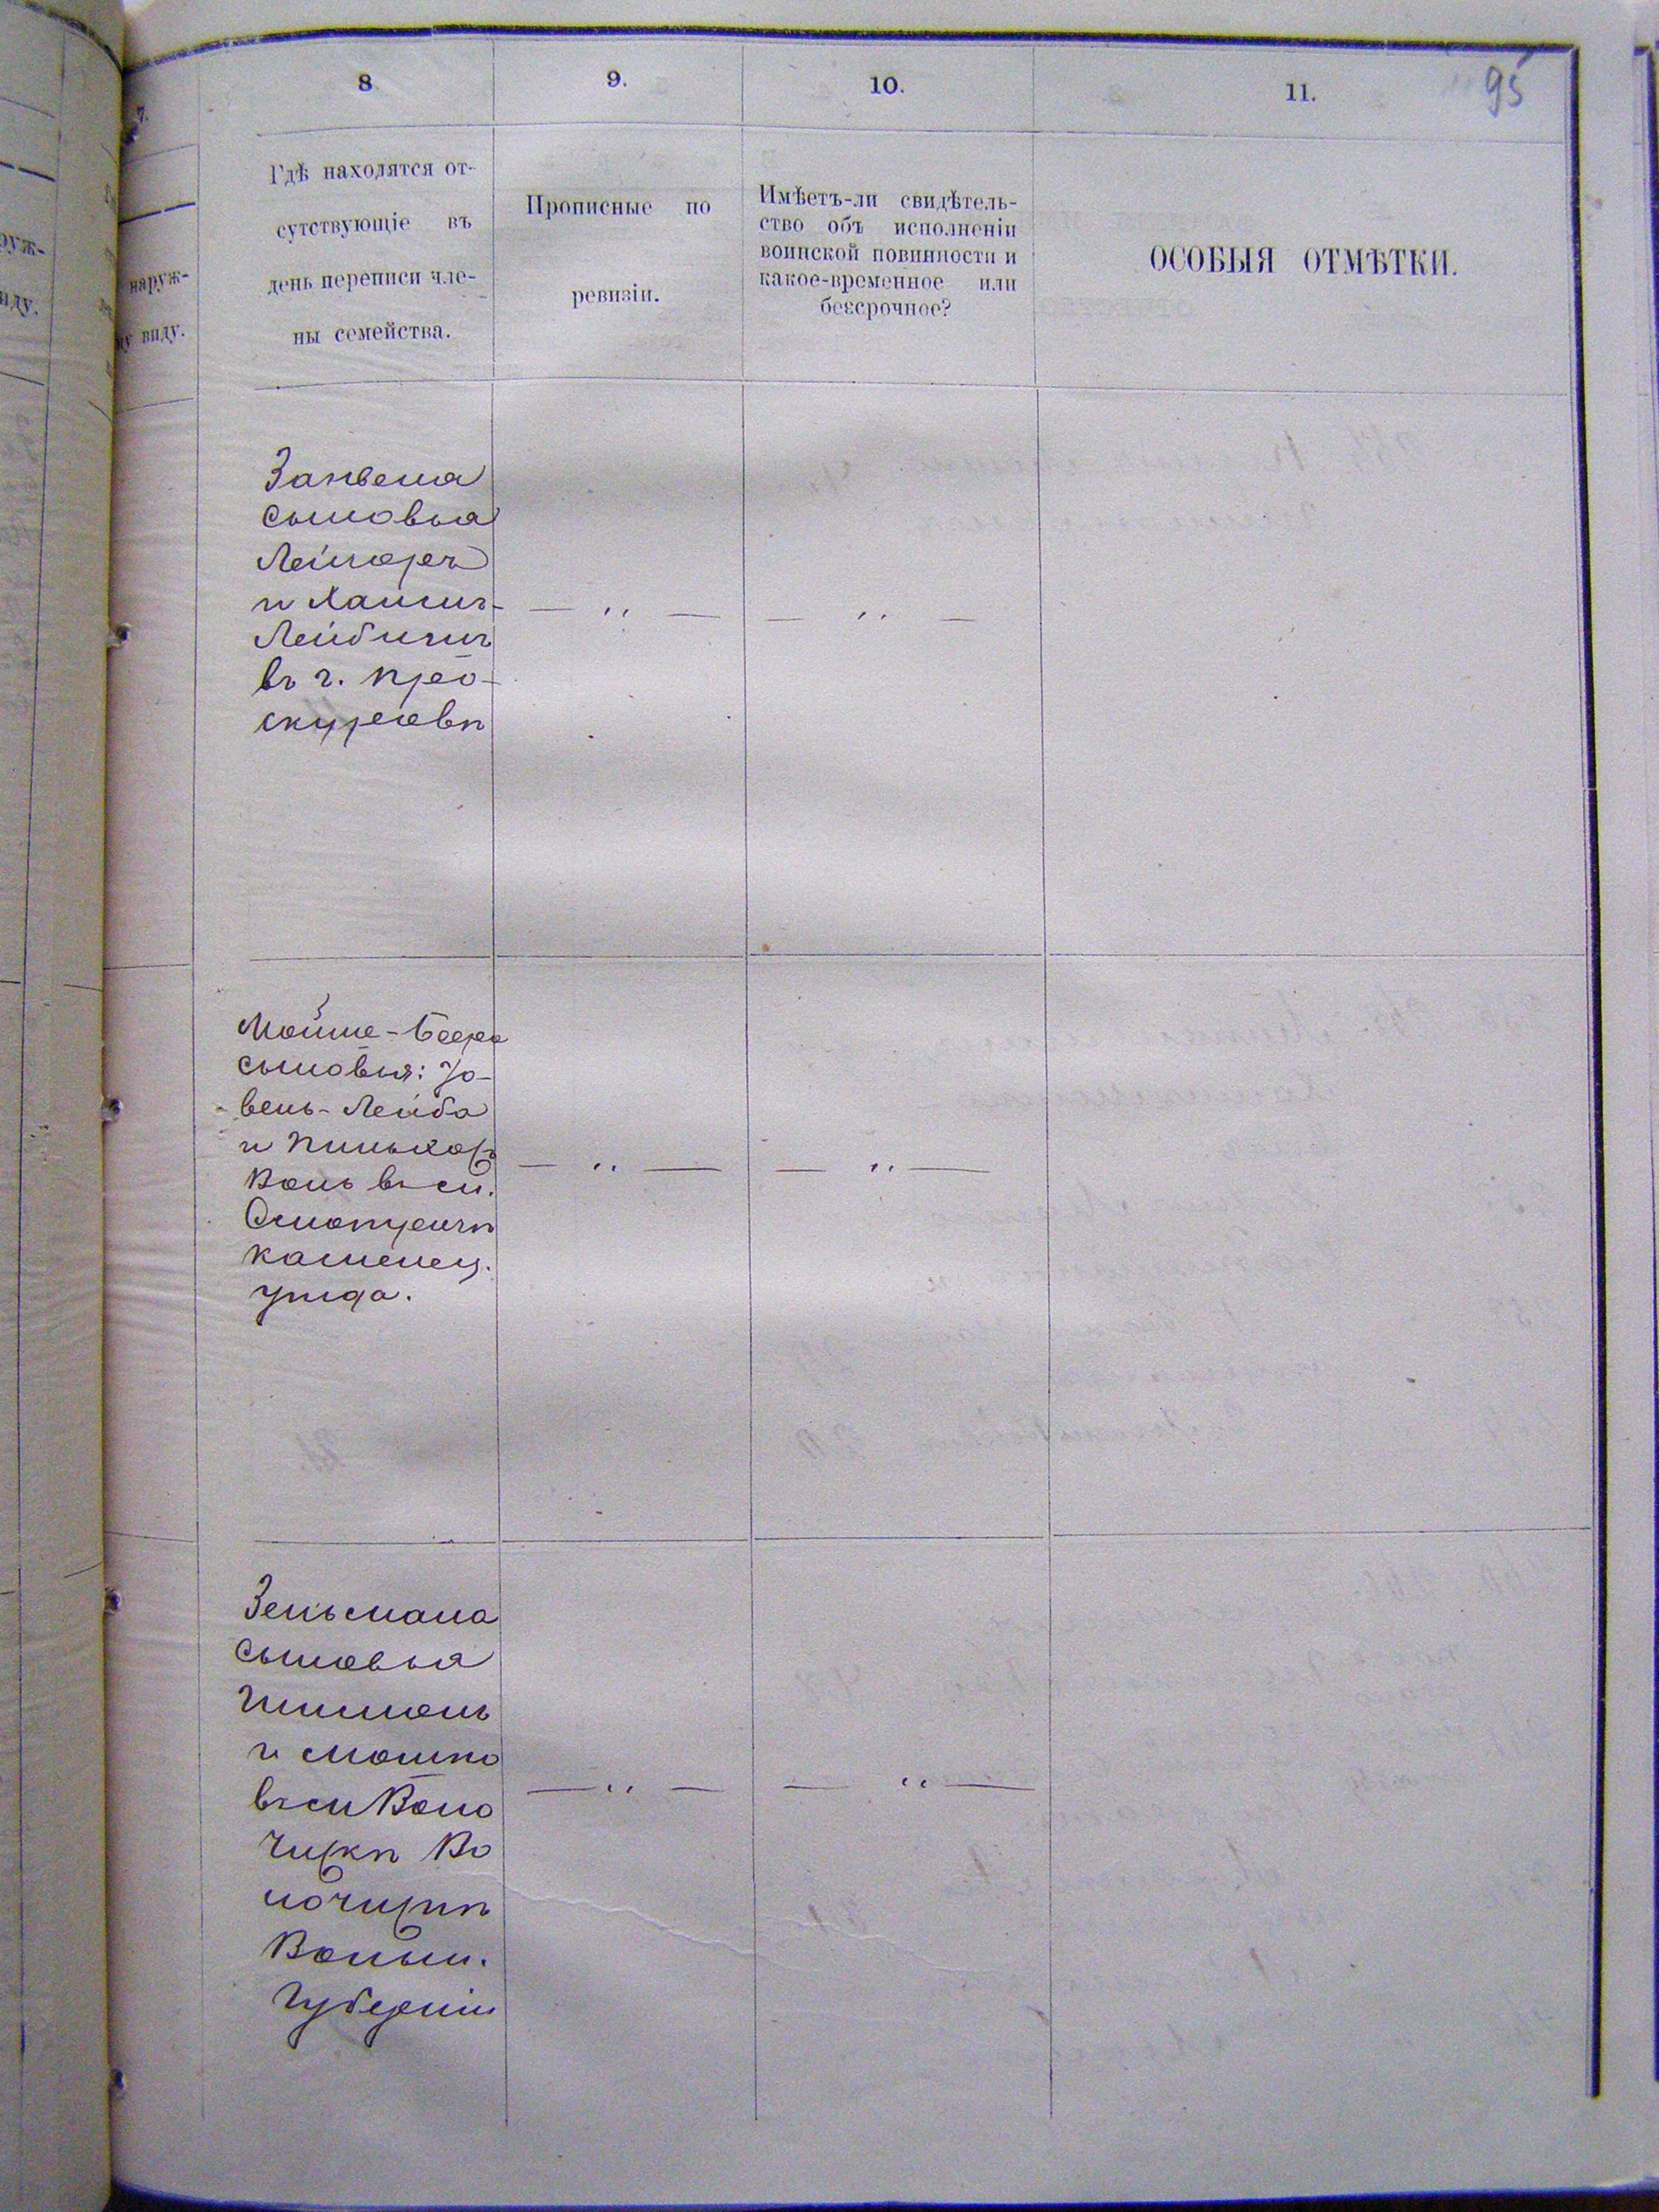 95
8
9.
10.
11.
7.
наруж-
виду.
Гдѣ находятся от-
сутствующіе въ
день переписи чле-
ны семейства.
Прописные по
ревизіи.
Имѣетъ-ли свидѣтель-
ство объ исполненіи
воинской повинности и
какое-временное или
безсрочное?
ОСОБЫЯ ОТМѢТКИ.
сыновья
и Хаимъ-
въ г. Про-
скуровѣ
— ,, —
— ,, —
Мойше-Бера
сыновья: Іо-
вель-Лейба
и
въ м.
Смотричѣ
каменец.
уѣзда.
— ,, —
— ,, —
Зельмана
сыновья
Шимонъ
и Мошко
въ м Воло
чискѣ Во
лочискѣ
Волын.
Губерніи
— ,, —
— ,, —